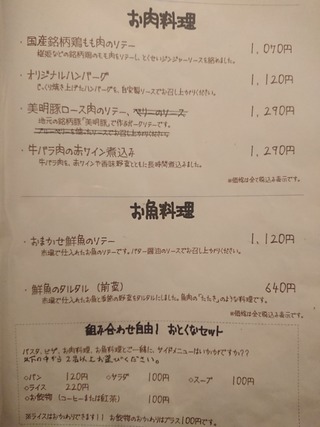 お肉料理
・国産銘柄鶏もも肉のソテー 1,070円
・オリジナルハンバーグ 1,120円
じっくり焼き上げたハンバーグを、自家製ソースでお召し上がりください。
・美明豚ロース肉のソテー、ベリーのソース 1,290円
地元の銘柄豚「美明豚」で作るポークソテーです。
・牛バラ肉の赤ワイン煮込み 1,290円
牛バラ肉を、赤ワインや香味野菜とともに長時間煮込みました。
※価格は全て税込み表示です。
お魚料理
・おまかせ鮮魚のソテー 1,120円
市場で仕入れたお魚のソテーです。バター醤油のソースでお召し上がりください。
・鮮魚のタルタル (前菜) 640円
市場で仕入れたお魚と季節の野菜をタルタルにしました。魚肉の「たたき」のような料理です。
※価格は全て税込み表示です。
組み合わせ自由! おとくなセット
パスタ、ピザ、お肉料理、お魚料理とご一緒に、サイドメニューはいかがですか??
以下の中から2名以上お選びください。
○パン 120円 ○サラダ 100円 ○スープ 100円
○ライス 220円
○お飲物 (コーヒーまたは紅茶) 100円
※ライスはおかわりできます!! お飲物のおかわりはプラス100円です。